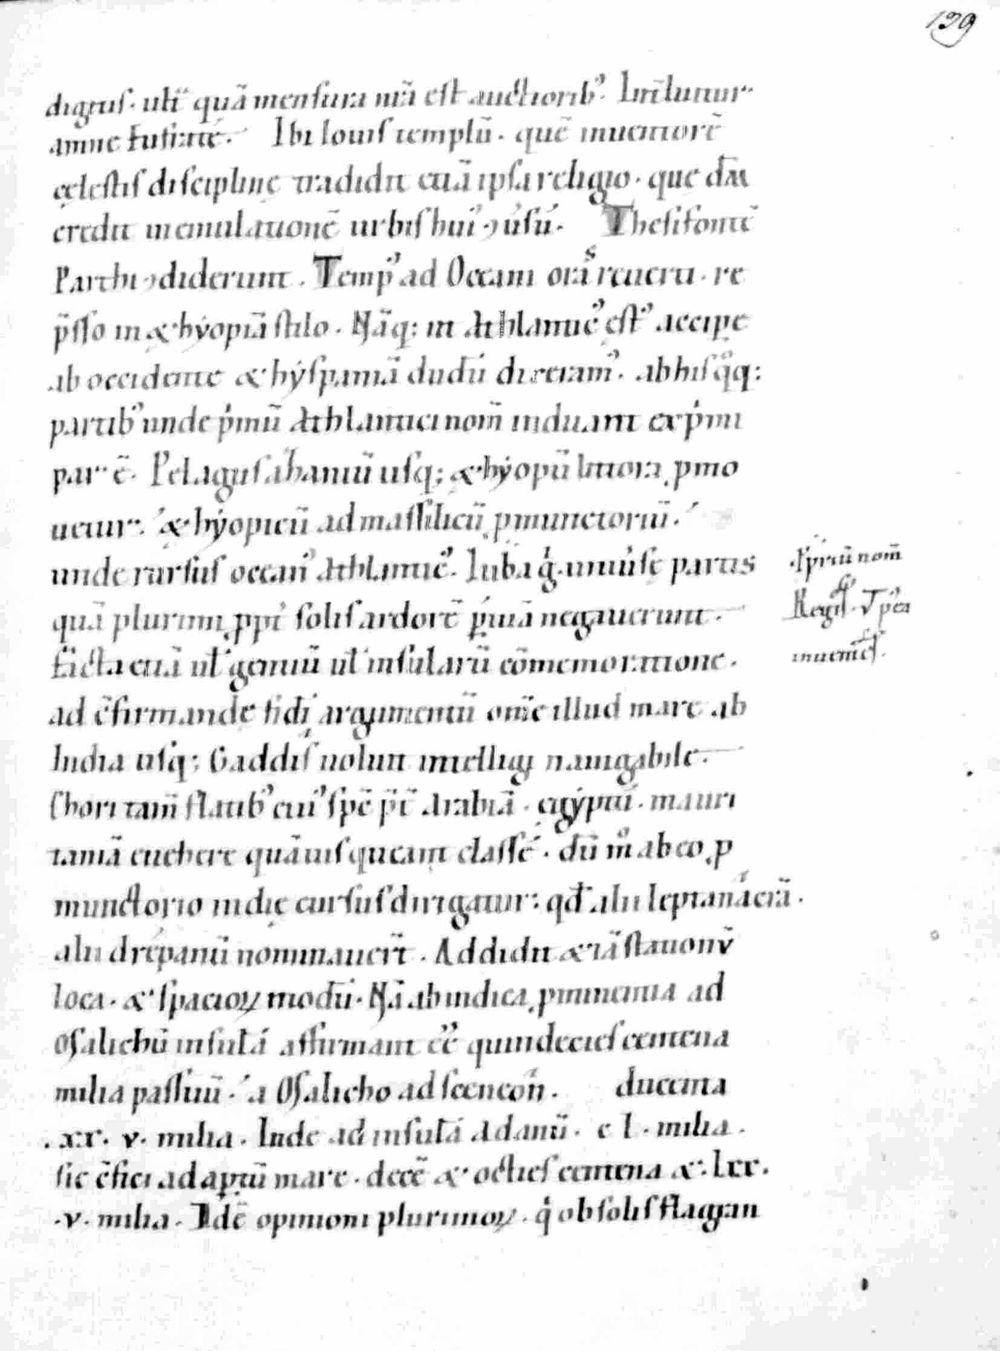 139
dignuſ. ult̄ quā menſura nr̄a eſt auctiorib᾽. Int̄luitur
amne Ibi Iouiſ templū. quē inuentorē
cęleſtiſ diſciplinę tradidit etiā ipſa religio. que dāt
credit in emulationē urbiſ hui᾽ ɔ uſū. Theſifontē
Parthi ɔdiderunt. Temp᾽ ad Oceani orāſ reuerti. re
p̄ſſo in æthẏopiā ſtilo. Nāq; in Athlantic᾽ eſt᾽ accipe
ab occidente & hẏſpaniā dudū dixeram᾽. ab hiſ qͦq;
partib᾽ unde pͥmū Athlantici nom̄ induant expͥmi
par ē. Pelaguſ ab aniū uſq; æthẏopū littora ꝓmo
uetur. æthẏopicū ad maſſilicū ꝓmunctoriū.
unde rurſuſ occan᾽ Athlantic᾽. Iuba gͥ uniuͥſę partiſ
quā plurimi ꝓpt᾽ ſoliſ ardorē ꝑuiā negauerunt.
facta etiā ul̄ gentiū ul̄ inſularū cōmemoratione.
ad c̄firmandę fidi argumentū om̄e illud mare ab
India uſq; Gaddiſ uolun intelligi nauigabile.
Chori tam̄ flatib᾽ cui᾽ ſpē p̄t̄ Arabiā. egẏptū. mauri
taniā euehere quāuiſ queant claſſē. dū mͦ ab eo ꝓ
munctorio indię curſuſ dirigatur: qđ alii leptanacrā.
alii drepanū nominauer̄t. Addidit & iā ſtationū
loca. & ſpacioꝝ modū. Nā ab indica ꝓminentia ad
Oſalichū inſulā affirmant eē quindecieſ centena
milia paſſuū. a Oſalicho ad ſceneon̄. ducenta
.xx. v. milia. Inde ad inſulā Adanū. c l. milia.
ſic c̄fici ad aptū mare. decē & octieſ centena &. lxx.
.v. milia. Idē opinioni plurimoꝝ. qͥ ob ſoliſ flagran
Ipriū nom̄
Regiſ. 
inuentͦſ.